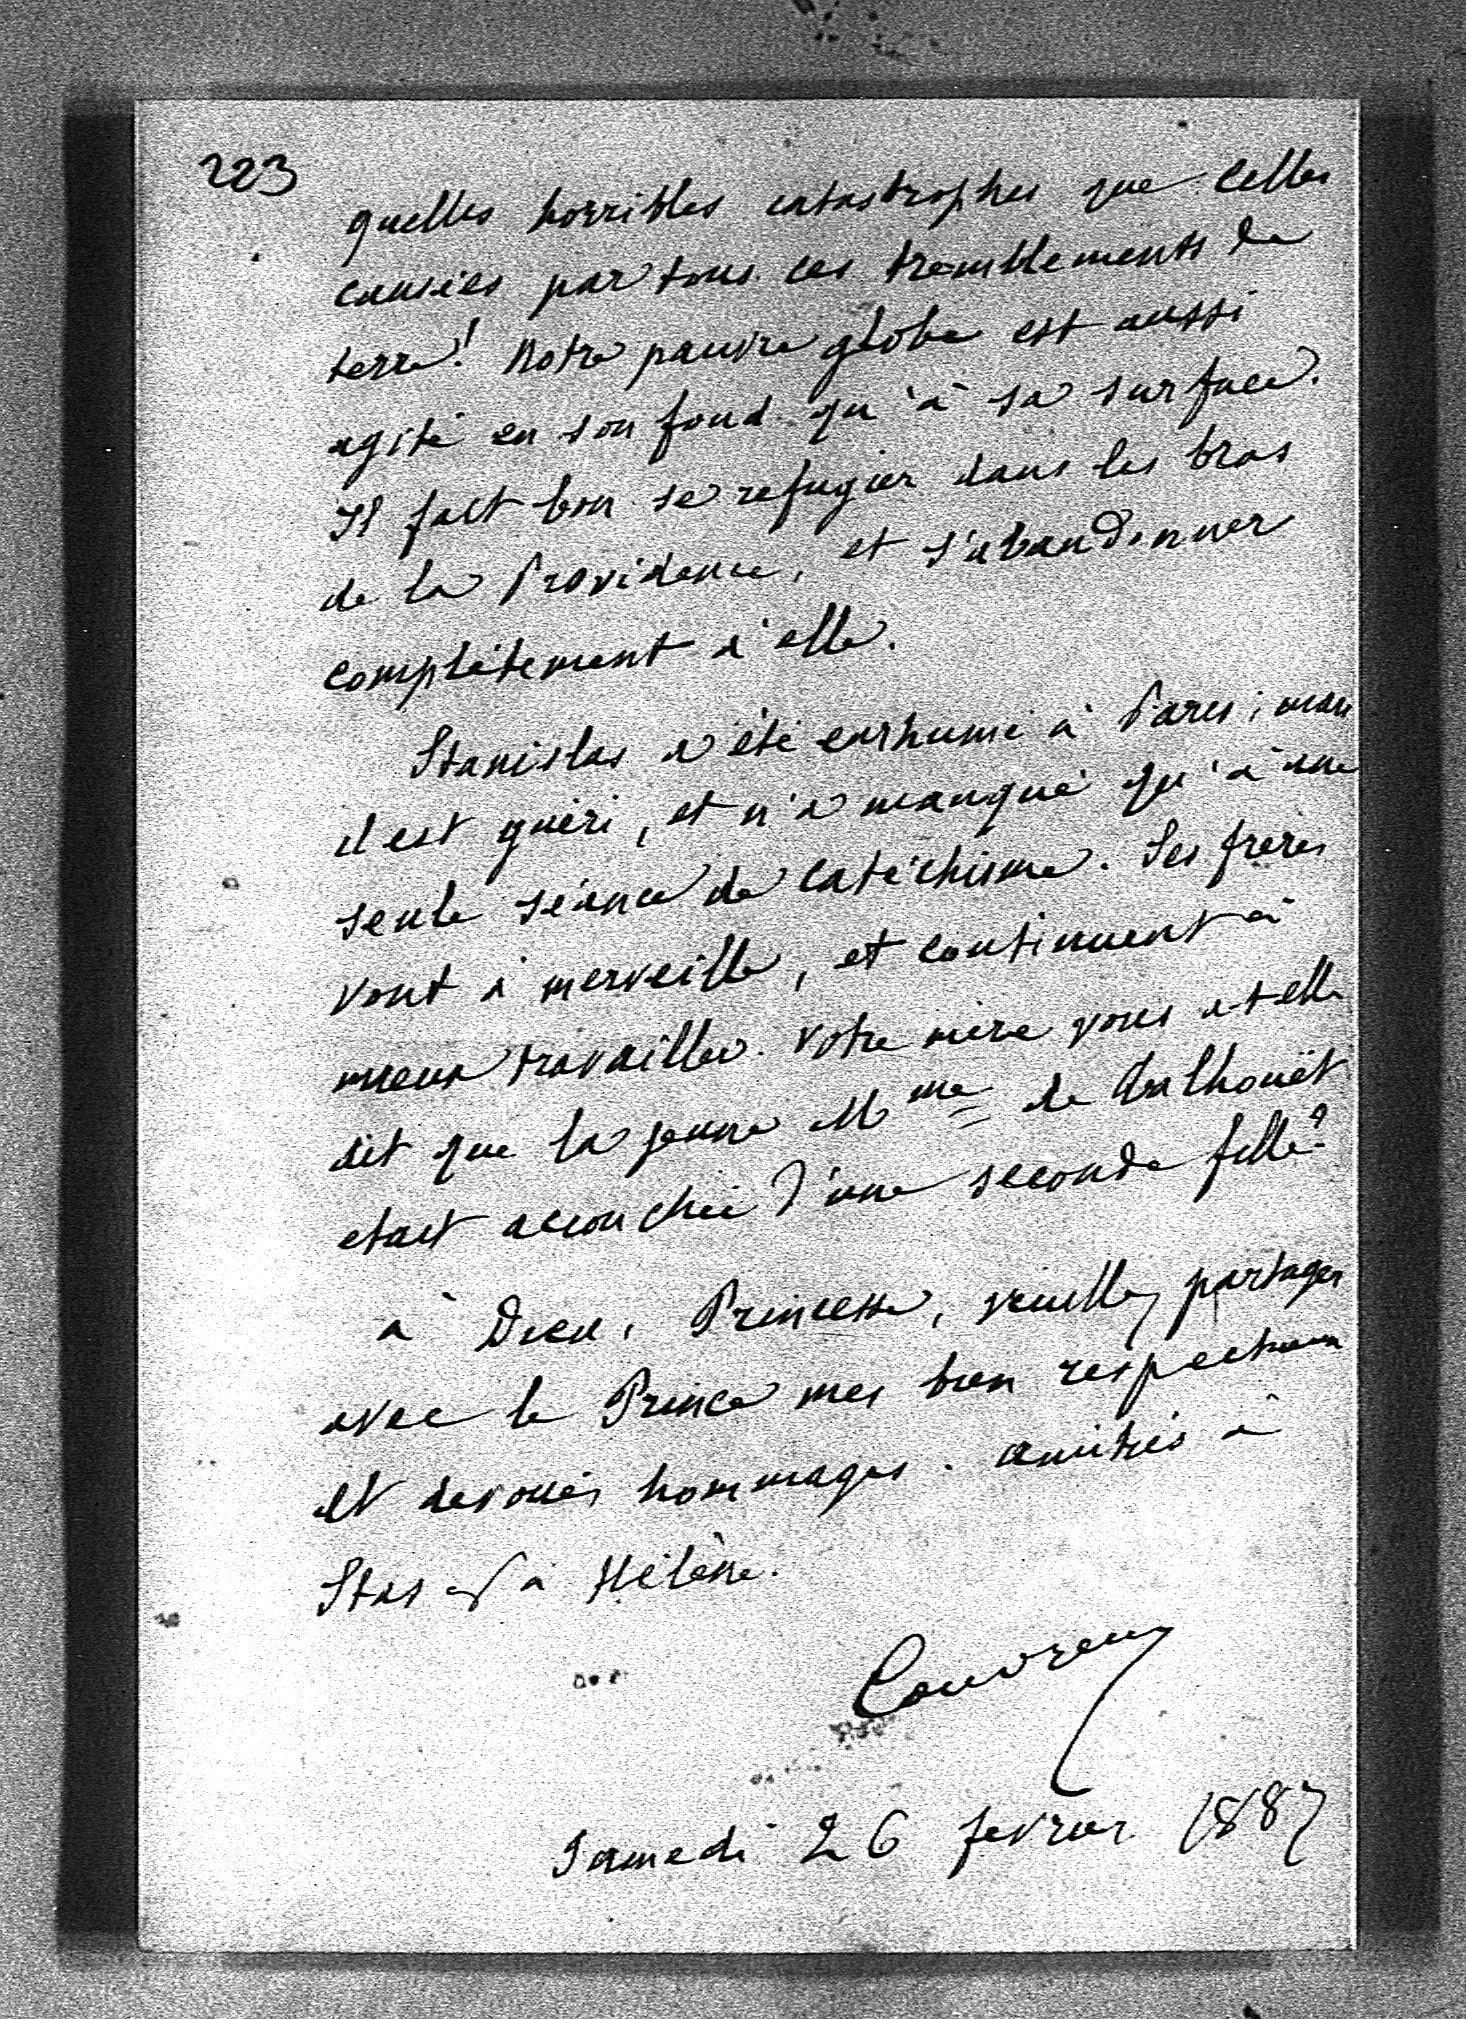 223
quelles horribles catastrophes que celles
causées par tous ces tremblements de
terre! Notre pauvre globe est aussi
agité en son fond qu'à sa surface.
Il fait bon se refugier dans les bras
de la Providence, et s'abandonner
complètement à elle.
Stanislas a été enrhumé à Paris; mais
il est guéri, et n'a manqué qu'à une
seule séance de catéchisme. Ses frères
vont à merveille, et continuent à
mieux travailler. Votre mère vous a-t-elle
dit que la jeune Mme de Talhouët
etait accouchée d'une seconde fille?
à Dieu, Princesse, veuillez partager
avec le Prince mes bien respectueux
et dévoués hommages. amitiés à
Stas et à Hélène.
Couvreux
Samedi 26 fevrier 1887